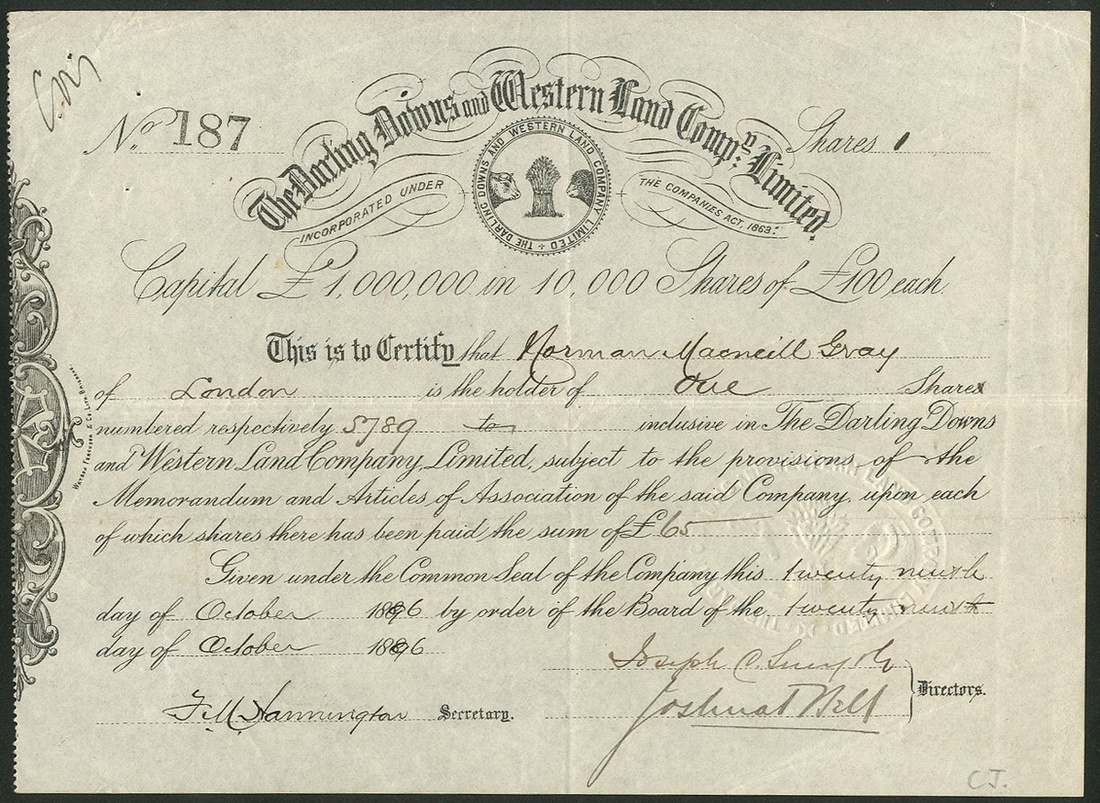 No. 187
The Darling Downs and Western Land Compy. Limited.
Shares 1
INCORPORATED UNDER
THE COMPANIES ACT, 1863.
THE DARLING DOWNS AND WESTERN LAND COMPANY LIMITED
Capital £1,000,000 in 10,000 Shares of £100 each.
This is to Certify that Norman Macneill Gray
of London is the holder of One Shares
numbered respectively 5789 to inclusive in The Darling Downs
and Western Land Company, Limited, subject to the provisions of the
Memorandum and Articles of Association of the said Company, upon each
of which shares there has been paid the sum of £65
Given under the Common Seal of the Company this twenty ninth
day of October 1896 by order of the Board of the twenty ninth
day of October 1896
Joseph C. Smyth
Joshua T Bell
Directors.
F. M. Hannington Secretary.
C.J.